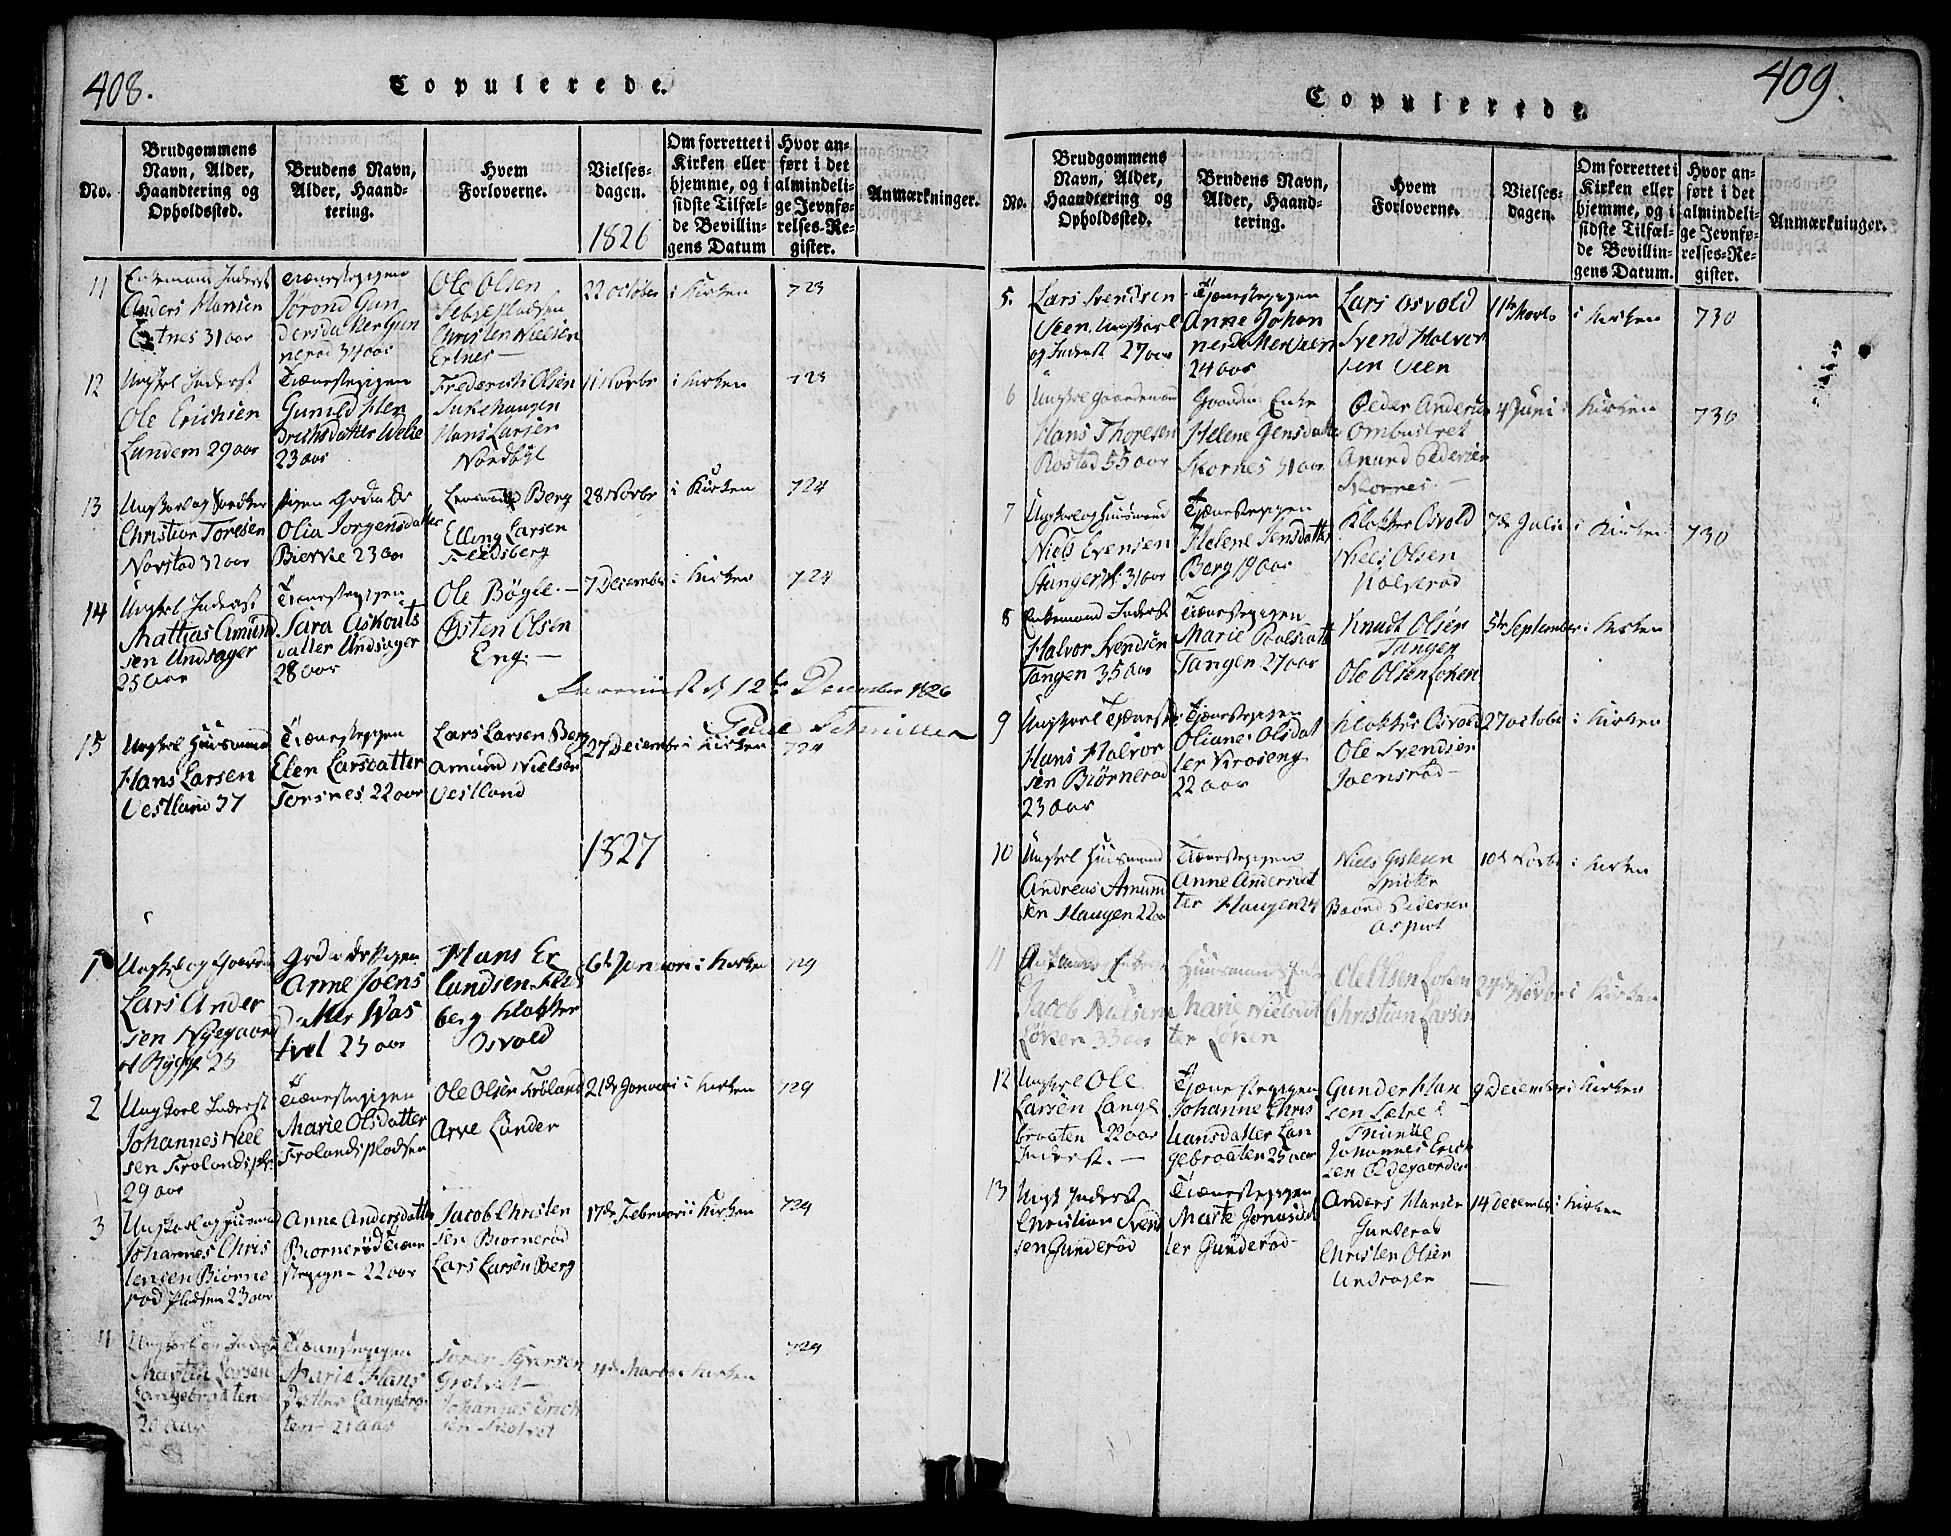 408.
Copulerede.
No.
Brudgommens
Navn, Alder,
Haandtering og
Opholdssted.
Brudens Navn,
Alder, Haand-
tering.
Hvem
Forloverne.
Vielses-
dagen.
1826
Om forrettet i
Kirken eller
hjemme, og i
sidste Tilfæl-
de Bevillin-
gens Datum
Hvor an-
ført i det
almindeli-
ge Jevnfø-
relses-Re-
gister.
Anmærkninger.
11
Enkemand Inderst
Anders Hansen
Ertnes 31 aar
Tiænestepigen
Jørond Gun
dersdatter Gun
nerød 34 aar
Ole Olsen
Christen Nielsen
Ertnes
22 october
i Kirken
723
12
Ungkrl Inderst
Ole Erichsen
Lundem 29 aar
Tienestepigen
Gunild Hen
drichsdatter
23 aar
Frederich Olsen
Hans Larsen
Nordbøgl
11 Novbr
i Kirken
723
13
Christian Toresen
Norstad 32 aar
pigen
Olia Jorgensdatter
Bierke 23 aar
Berg
Elling Larsen
28 Novbr
i Kirken
724
14
Ungkrl Inderst
Mathias Amund
sen Undsager
25 aar
Tienestepigen
Sara Askouts
datter Undsager
28 aar
Ole Bögle
Østen Olsen
Eng.
7 December
i Kirken
724
12te December 1826
15
Ungkrl Huusmand
Hans Larsen
Vestland 37
Tienestepigen
Elen Larsdatter
Torsnes 22 aar
Lars Larsen Berg
Amund Nielsen
Vestland
27 Decembr
i Kirken
724
1827
1
Ungkrl og
Lars Ander
sen Nygaard
25
pigen
Anne Joens
datter Was
tvet 23 aar
Hans Er
landsen
berg Klokker
Osvold
6te Januari
i Kirken
729
2
Ungkarl Inderst
Johannes Niel
sen Frolands
29 aar
Tienestepigen
Marie Olsdatter
Frolandspladsen
Ole Olsen Fröland
Arve Lunder
21de Januari
i Kirken
729
3
Ungkarl og Huusmand
Johannes Chris
tensen Biørne
rød Pladsen 23 aar
Anne Andersdatter
Biornerød Tiæne
stepige 22 aar
Jacob Christen
sen Biornerød
Lars Larsen Berg
17de Februari
i Kirken
729
4
Ungkarl og Inderst
Larsen
Langebraaten
Tienestepigen
Marie Hans
Datter Langebra
ten 21 aar
Johannes Erich
sen
4de Marts
i Kirken
729
409.
Copulerede.
No.
Brudgommens
Navn, Alder,
Haandtering og
Opholdssted.
Brudens Navn,
Alder, Haand-
tering.
Hvem
Forloverne.
Vielses-
dagen.
Om forrettet i
Kirken eller
hjemme, og i
sidste Tilfæl-
de Bevillin-
gens Datum.
Hvor an-
ført i det
almindeli-
ge Jevnfø-
relses-Re-
gister.
Anmærkninger.
5.
Lars Svendsen
Veen Ungkarl
og Inderst 27 aar
Tjænestepigen
Anne Johan
nesdatter Veen
24 aar
Lars Osvold
Svend Halvor
sen Veen
11te Marts
i Kirken
730
6
Ungkrl Gaardmand
Hans Thoresen
Rostad 55 aar
Enke
Helene Jensdatter
Skornes 31 aar
Peder Andersen
Ombustvet
Anund Pedersen
Skornes
4 Juni
i Kirken
730
7
Ungkarl og Huusmand
Niels Evensen
31 aar
Tjænestepigen
Helene Jensdatter
Berg 19 aar
Klokker Osvold
Niels Olsen
Holserød
7de Julii
i Kirken
730
8
Enkemand Inderst
Halvor Svendsen
Tangen 35 aar
Tiænestepigen
Marie
Tangen 27 aar
Knudt Olsen
Tangen
Ole Olsen Löken
5te September
i Kirken
9
Ungkarl
Hans Halvor
sen Biørnerød
23 aar
Tjenestepigen
Oliane Olsdat
ter
22 aar
Klokker Osvold
Ole Svendsen
Joensrød
27 october
i Kirken
10
Ungkrl Huusmand
Andreas Amund
sen Haugen 22 aar
Tienestepigen
Anne Andersdat
ter Haugen 24
Niels
Baard Pedersen
10de Novbr
i Kirken
11
Jacob Nielsen
Löken 33 aar
Marie Nielsdat
ter Löken
Ole Olsen Löken
Christian Larsen
24de Novbr
i Kirken
12
Ungkrl Ole
Larsen Lange
braaten 22 aar
Inderst.
Tjænestepigen
Johanne Chris
tiansdatter Lan
gebraaten 25 aar
Gunder Han
sen
Johannes Erich
sen Ødegaarden
9 December
i Kirken
13
Ungk Inderst
Christian Svend
sen Gunderød
Tiænestepigen
Marte Jonasdat
ter Gunderød
Anders Hansen
Gunderød
Christen Olsen
Undsager
14 December
i Kirken